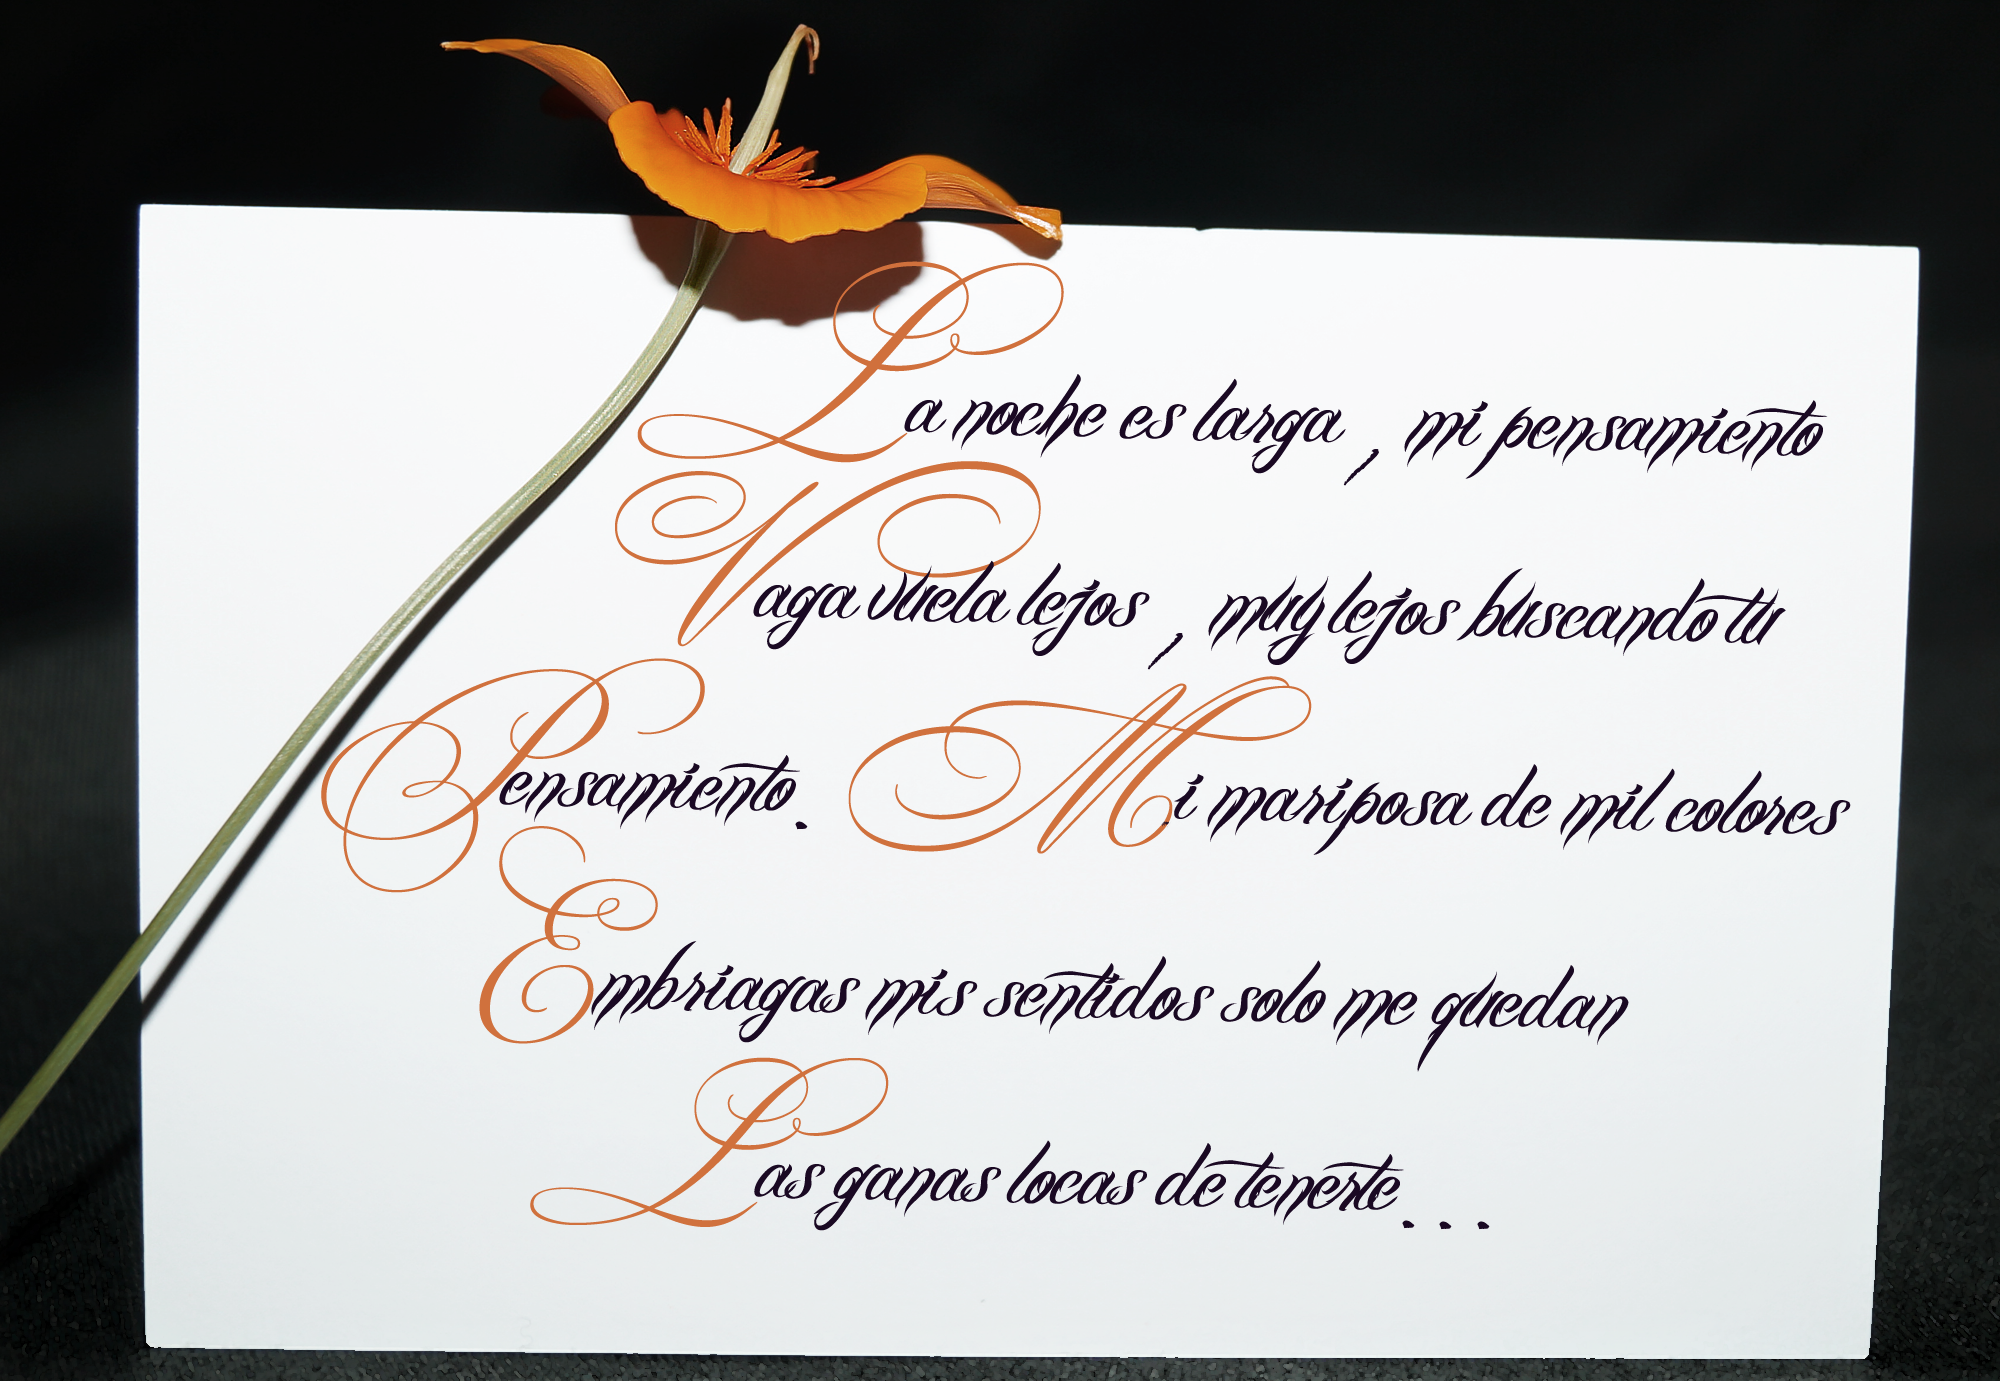 La noche es larga , mi pensamiento
Vaga vuela lejos , muy lejos buscando tu
Pensamiento. Mi mariposa de mil colores
Embriagas mis sentidos solo me quedan
Las ganas locas de tenerte...